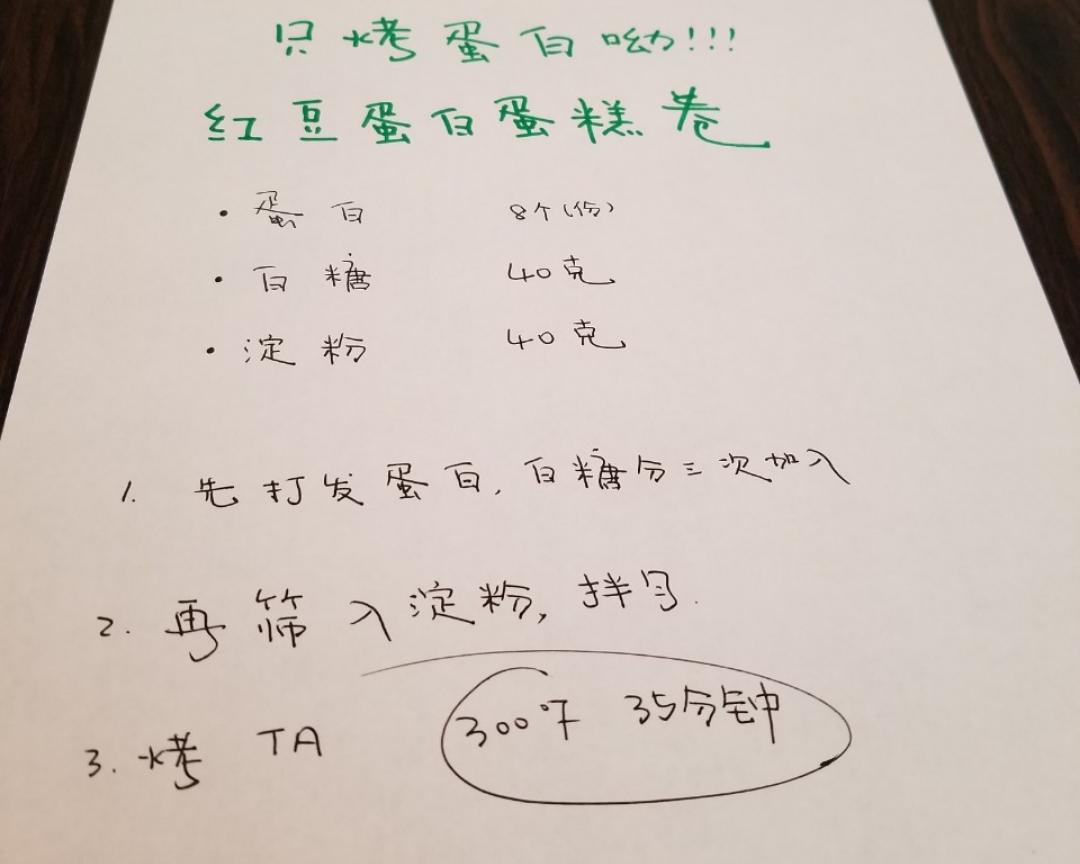 只烤蛋白呦!!!
红豆蛋白蛋糕卷
· 蛋白 8个(份)
· 白糖 40克
· 淀粉 40克
1. 先打发蛋白, 白糖分三次加入
2. 再筛入淀粉, 拌匀.
3. 烤 TA 300°F 35分钟